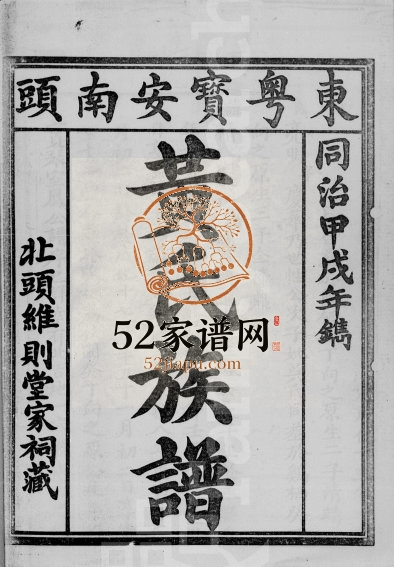 東粤寳安南頭
同治甲戌年鐫
黃氏族譜
北頭維則堂家祠藏
52家谱网
52jiapu.com